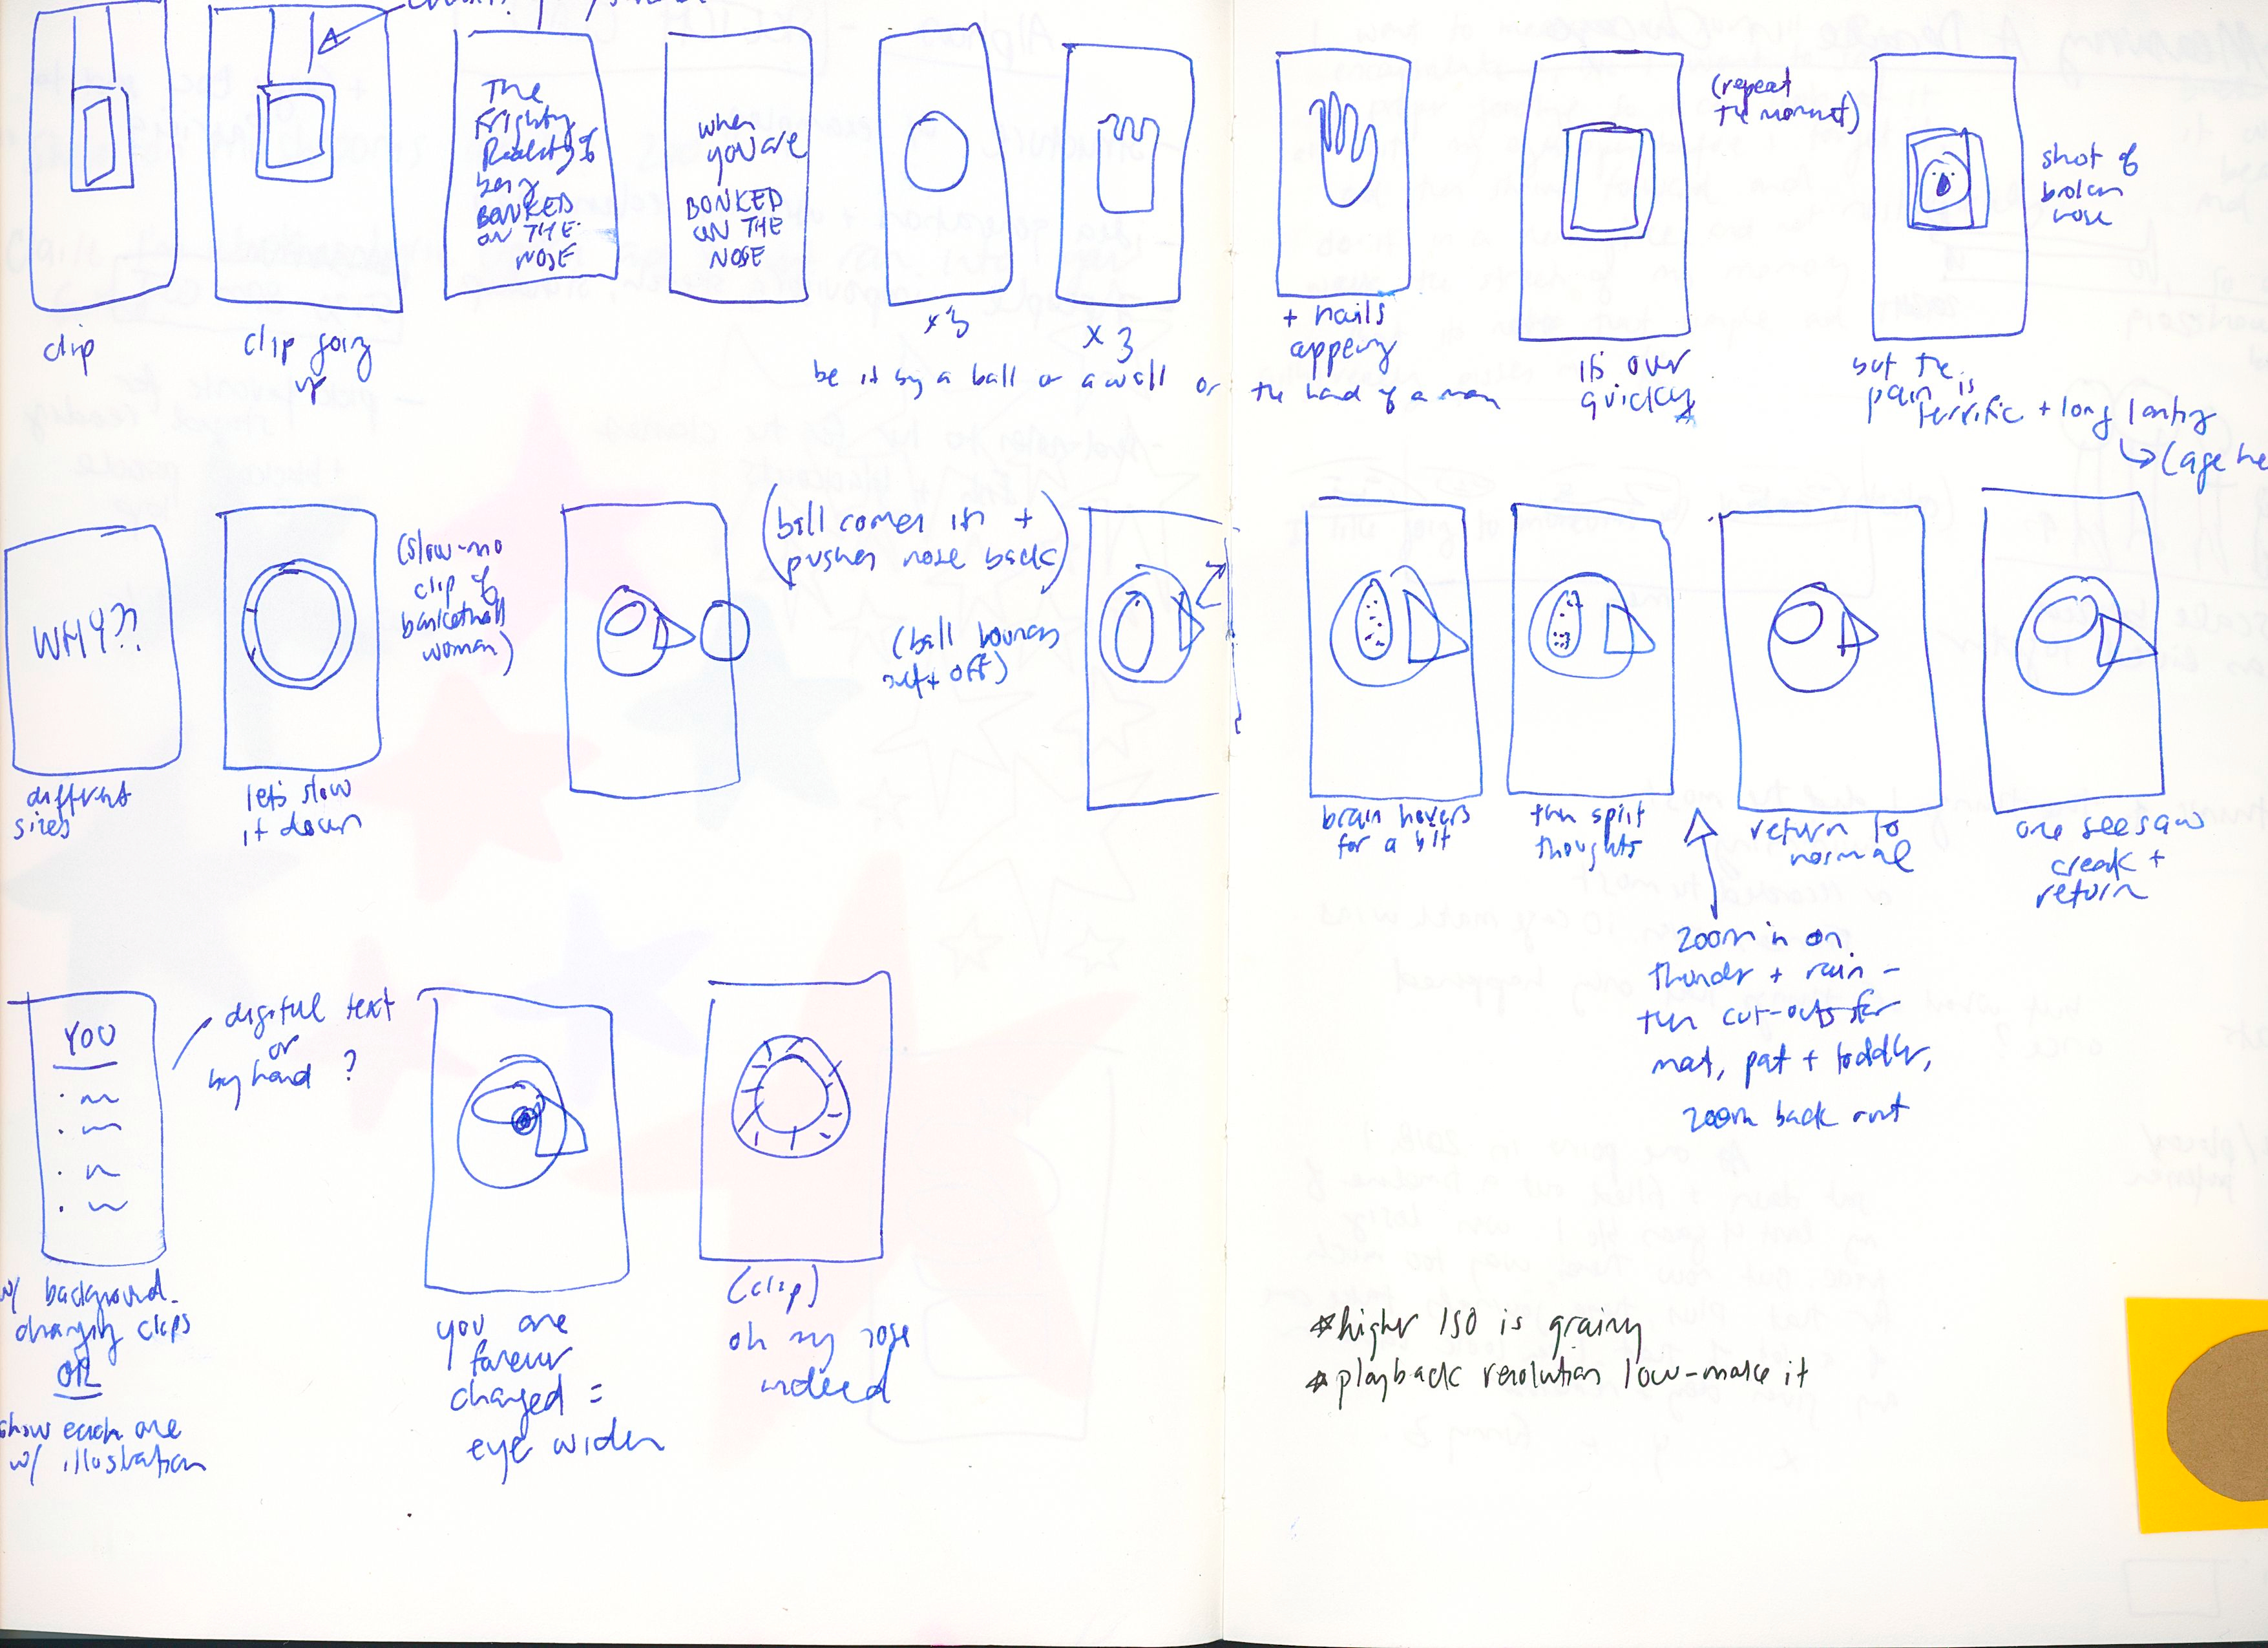 The
Frighty
Reality of
being
BONKED
ON THE
NOSE
when
you are
BONKED
ON THE
NOSE
clip
clip going
up
x 3
x 3
be it by a ball or a wall or the hand of a man
+ nails
appearing
it's over
quickly
(repeat
the moment)
shot of
broken
nose
but the
pain is
terrific + long lasting
(age he
WHY??
different
sizes
let's slow
it down
(slow-mo
clip of
basketball
woman)
(ball comes in +
pushes nose back)
(ball bounces
out + off)
brain hovers
for a bit
the split
thoughts
return to
normal
one seesaw
creak +
return
zoom in on
thunder + rain -
the cut-outs for
mat, pat + toddler,
zoom back out
YOU
digital text
or
by hand ?
w/ background
changing clips
OR
show each one
w/ illustration
you are
forever
changed =
eye widen
(clip)
oh my nose
indeed
*higher ISO is grainy
*playback resolution low-make it